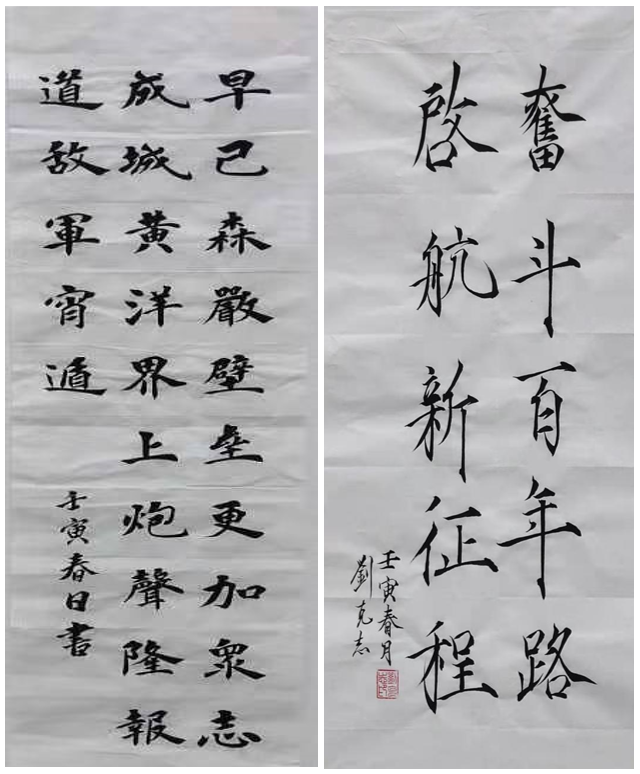 早已森嚴壁垒更加衆志
成城黄洋界上炮聲隆報
道敌軍宵遁
壬寅春日書
奮斗百年路
啓航新征程
壬寅春月
劉克志